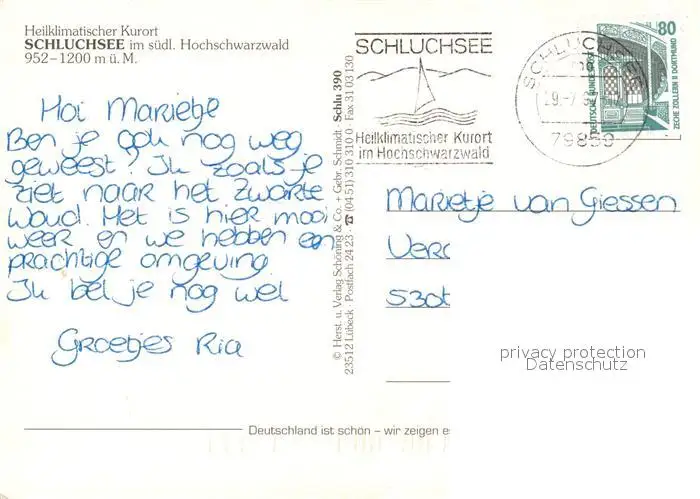 Heilklimatischer Kurort
SCHLUCHSEE im südl. Hochschwarzwald
952-1200 m ü. M.
Hoi Marietje
Ben je ook nog weg
geweest? Ik zoals je
ziet naar het Zwarte
Woud. Het is hier mooi
weer en we hebben een
prachtige omgeving
Ik bel je nog wel
Groetjes Ria
© Herst. u. Verlag Schöning & Co. + Gebr. Schmidt · Schlu 390
23512 Lübeck · Postfach 24 23 · ☎ (04 51) 310 33 0 · Fax 31 03 130
SCHLUCHSEE
Heilklimatischer Kurort
im Hochschwarzwald
SCHLUCHSEE
79859
80
DEUTSCHE BUNDESPOST
ZECHE ZOLLERN II DORTMUND
Marietje van Giessen
privacy protection
Datenschutz
Deutschland ist schön – wir zeigen es